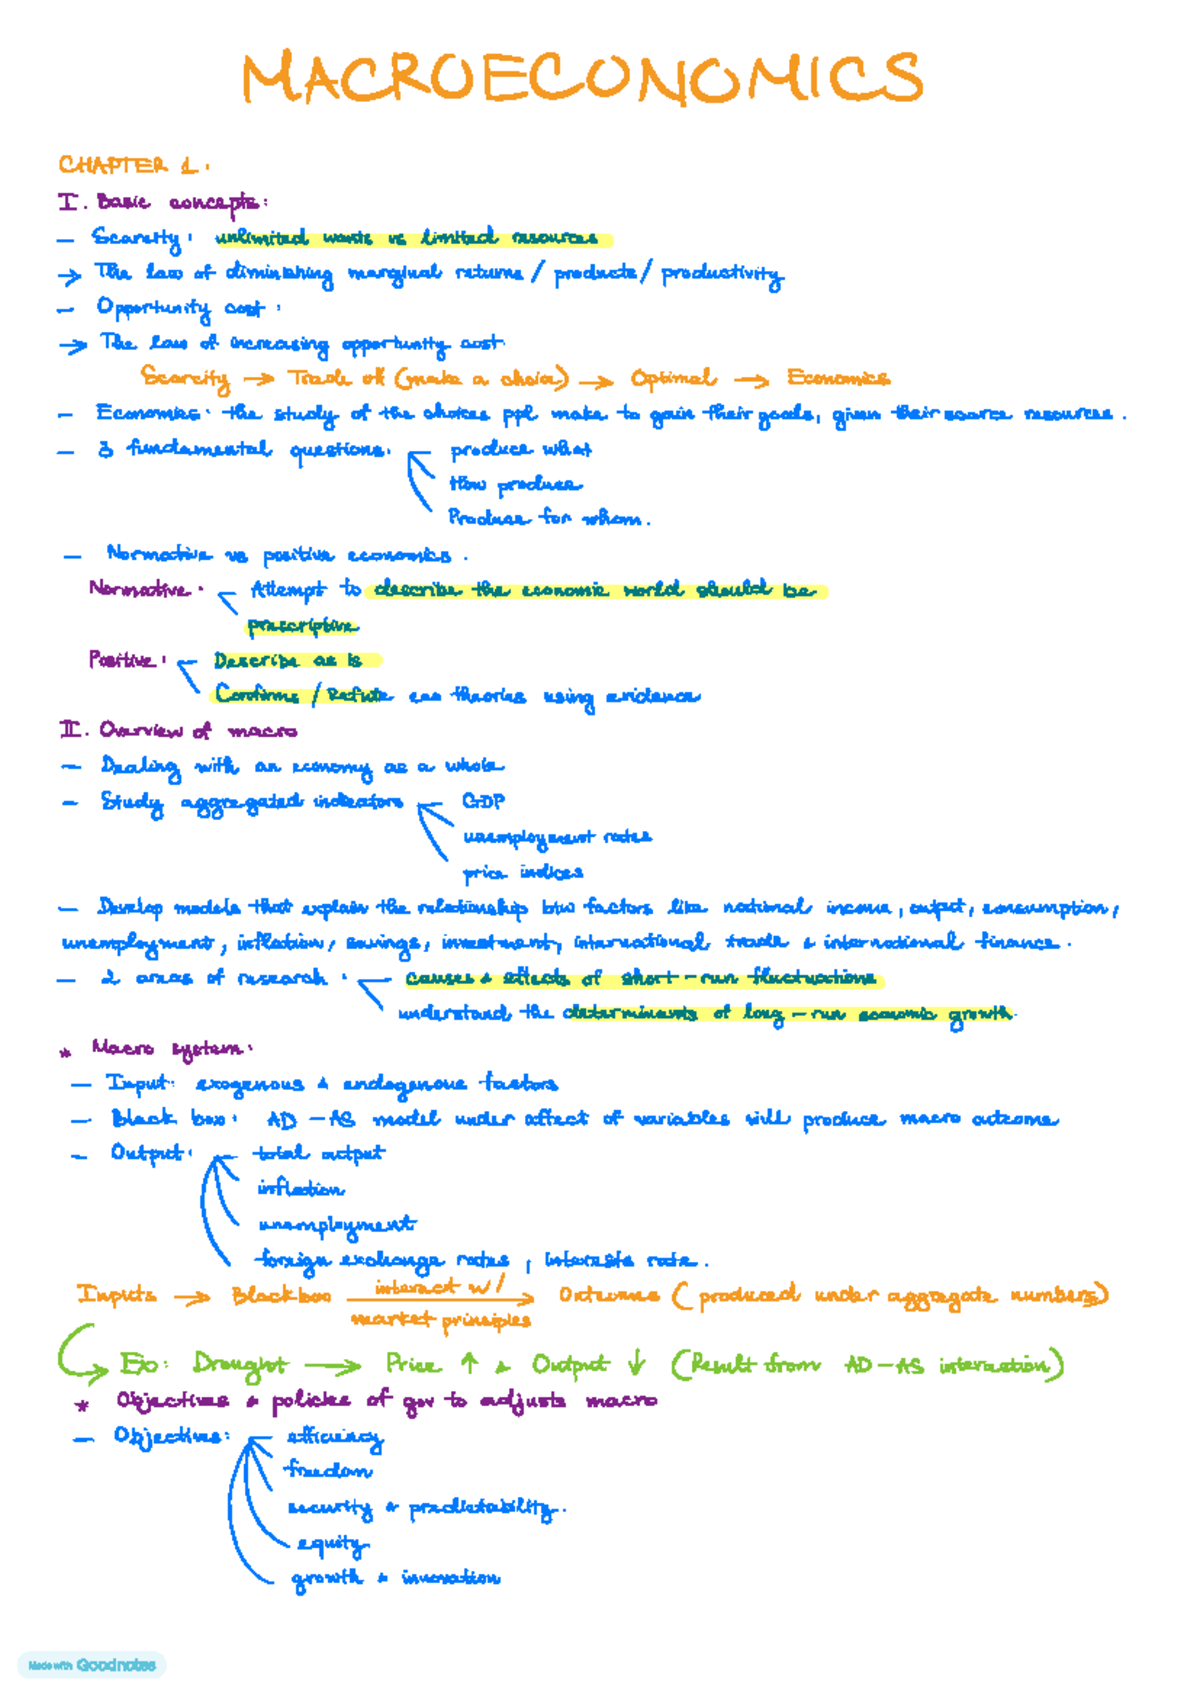 MACROECONOMICS
CHAPTER 1:
I. Basic concepts:
- Scarcity: unlimited wants vs limited resources
→ The law of diminishing marginal returns / products / productivity
- Opportunity cost:
→ The law of increasing opportunity cost
Scarcity → Trade off (make a choice) → Optimal → Economics
- Economics: the study of the choices ppl make to gain their goals, given their scarce resources.
- 3 fundamental questions: produce what
How produce
Produce for whom.
- Normative vs positive economics.
Normative: Attempt to describe the economic world should be
prescriptive
Positive: Describe as is
Confirms / Refute eco theories using evidence
II. Overview of macro
- Dealing with an economy as a whole
- Study aggregated indicators GDP
unemployment rates
price indices
- Develop models that explain the relationship btw factors like national income, output, consumption,
unemployment, inflation, savings, investment, international trade & international finance.
- 2 areas of research: causes & effects of short-run fluctuations
understand the determinants of long-run economic growth.
* Macro system:
- Input: exogenous & endogenous factors
- Black box: AD-AS model under affect of variables will produce macro outcome
- Output: total output
inflation
unemployment
foreign exchange rates, interests rate.
Inputs → Blackbox interact w/ market principles → Outcome (produced under aggregate numbers)
Ex: Drought → Price ↑ & Output ↓ (Result from AD-AS interaction)
* Objectives & policies of gov to adjusts macro
- Objectives: efficiency
freedom
security & predictability.
equity
growth & innovation
Made with Goodnotes